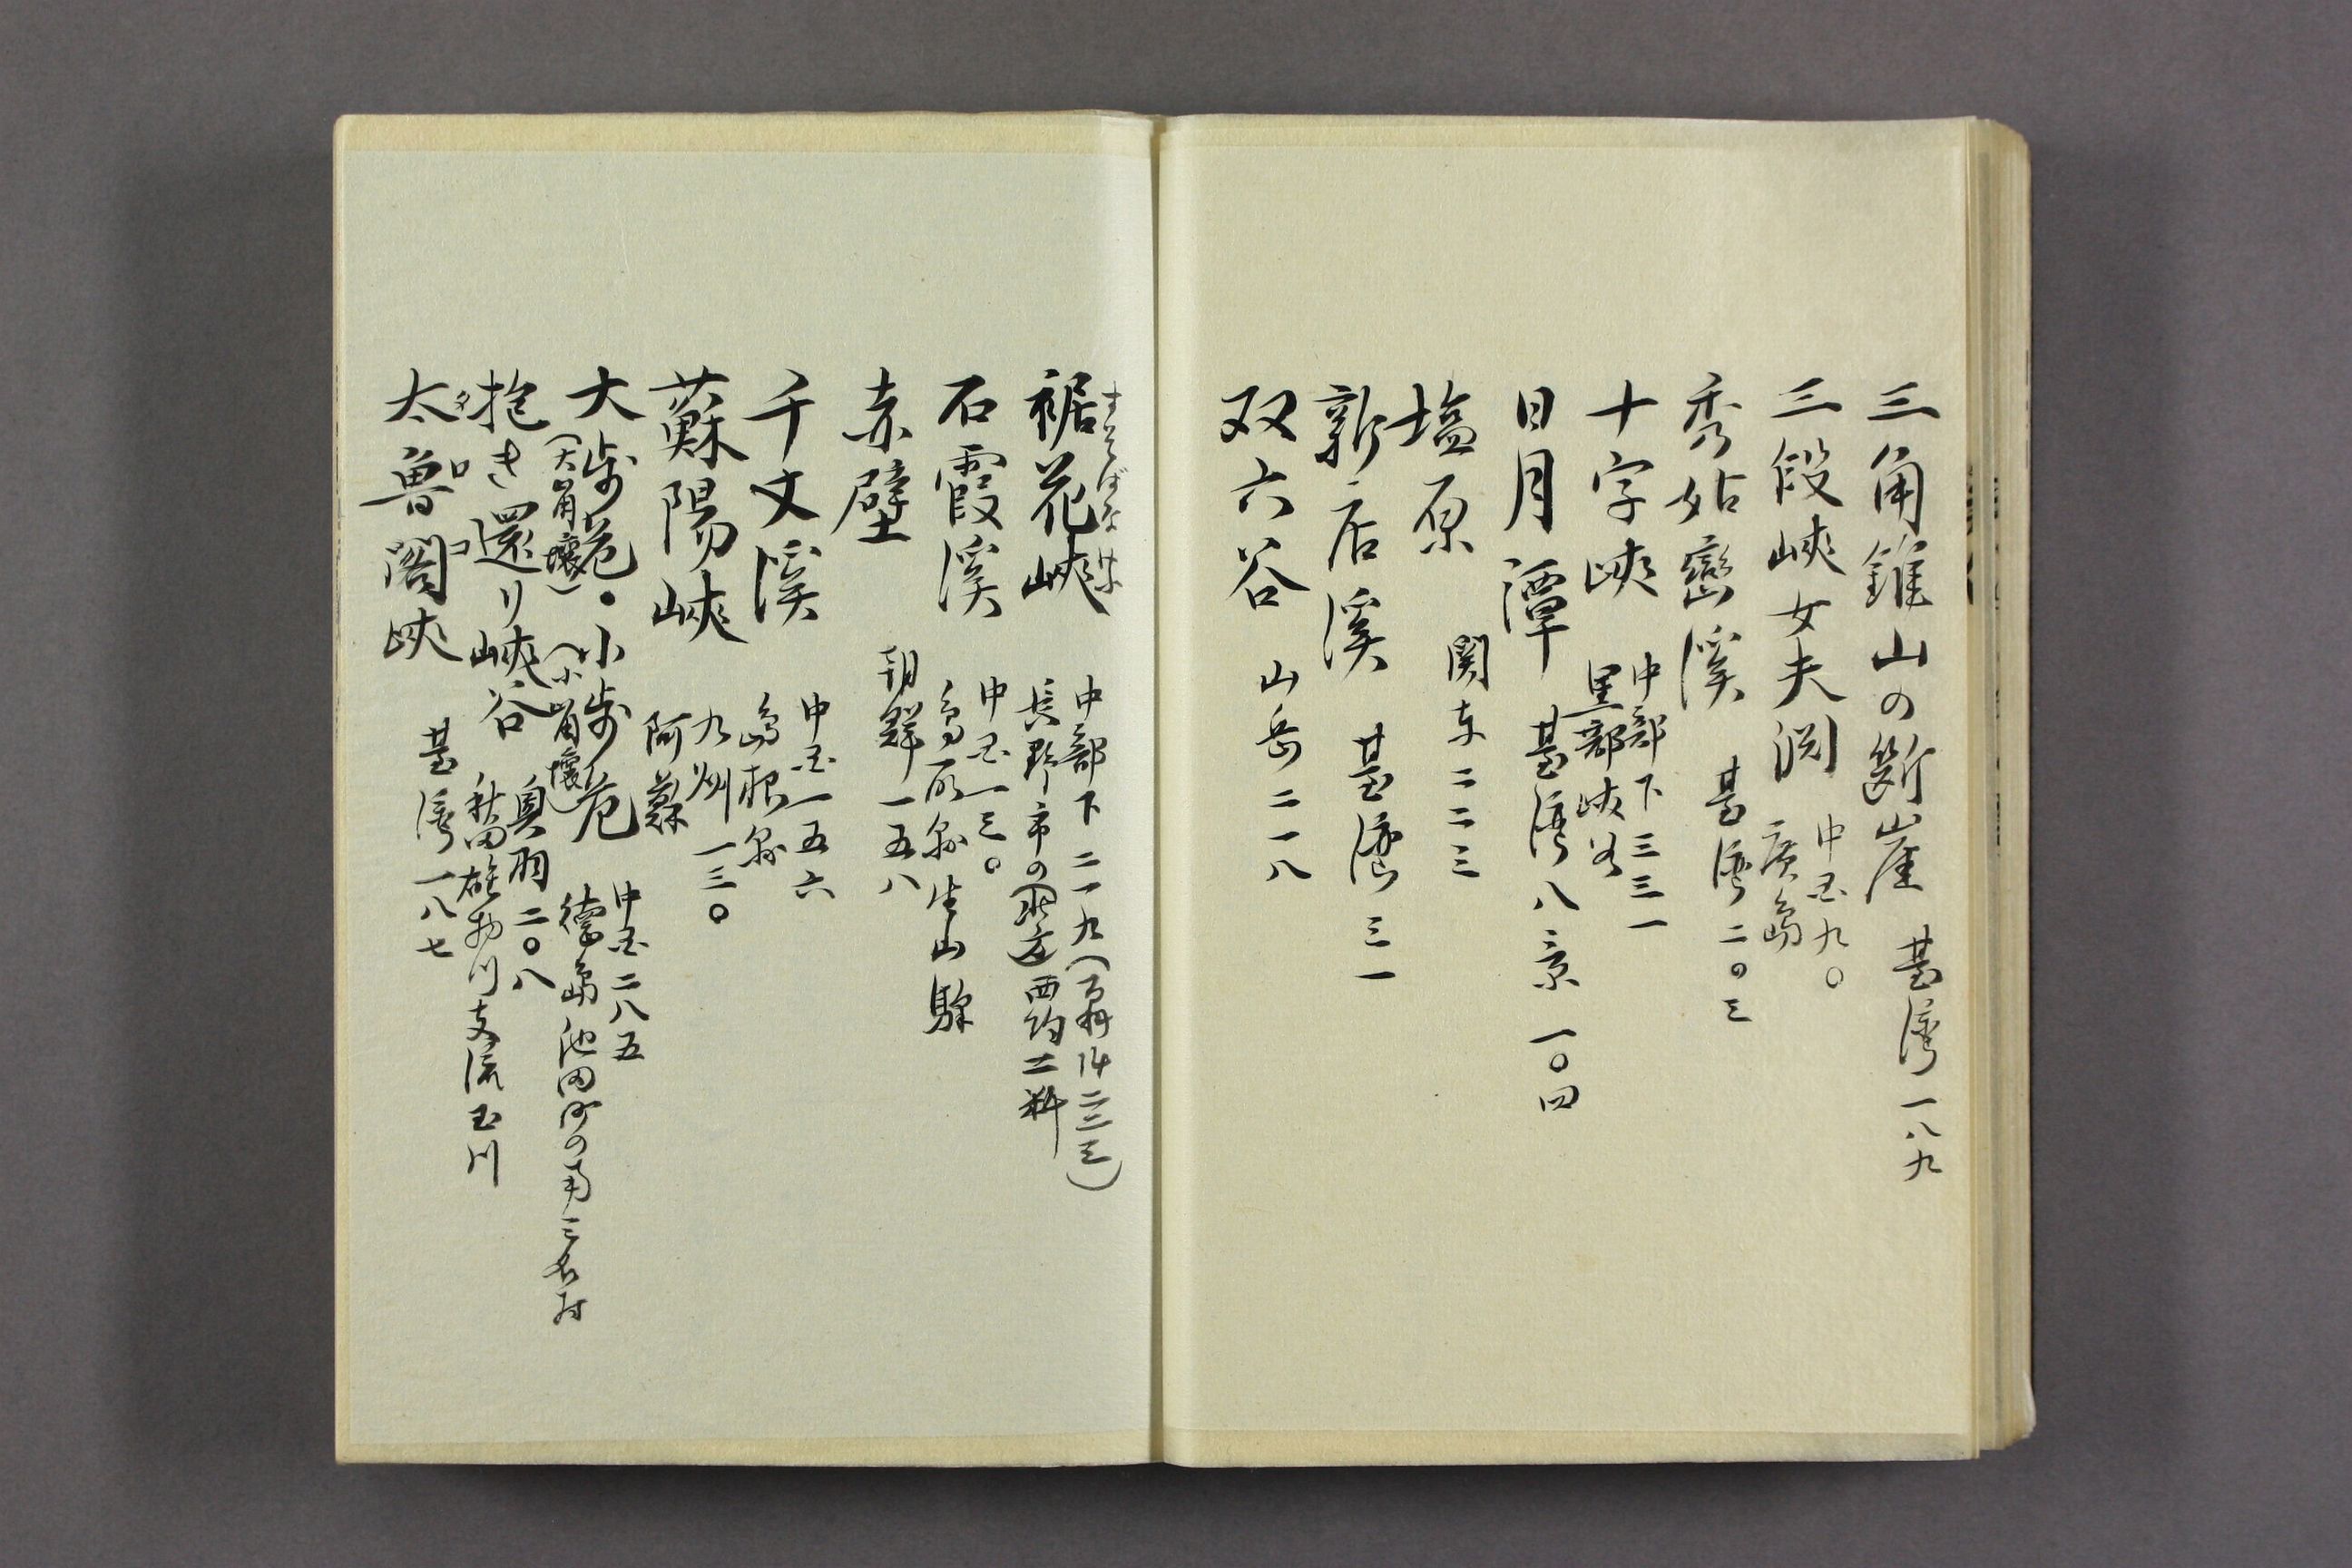 三角錐山の斷崖 臺湾 一八九
三段峡女夫渕 中国九〇
廣島
秀姑巒溪 臺湾二〇三
十字峡 中部下三三一
黒部峡谷
日月潭 臺湾八景 一〇四
塩原 関東二二三
新店溪 臺湾 三一
双六谷 山岳二一八
すそばな
裾花峽 中部下二一九
長野市の 西約二粁
石霞溪 中国一三〇
鳥取縣 生山驛
赤壁 朝鮮 一五八
千丈溪 中国一五六
島根縣
蘇陽峽 九州 一三〇
阿蘇
大歩危・小歩危 中国二八五
(大嵓壊) (小嵓壊) 徳島 池田町の南三名村
抱き還り峽谷 奥羽二〇八
秋田雄物川支流玉川
タロコ
太魯閣峽 臺湾 一八七